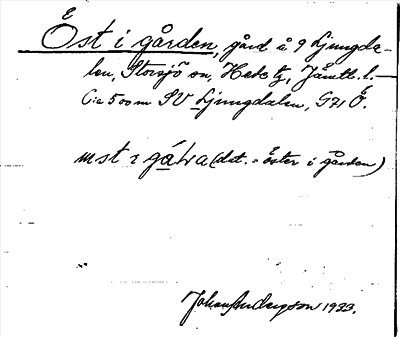 Öst i gården, gård å 9 Ljungda-
len, Storsjö sn, Hede tg, Jämtl. l.
C:a 500 m SV Ljungdalen, G21 Ö.
(det. = öster i gården)
Johan Anderson 1933.